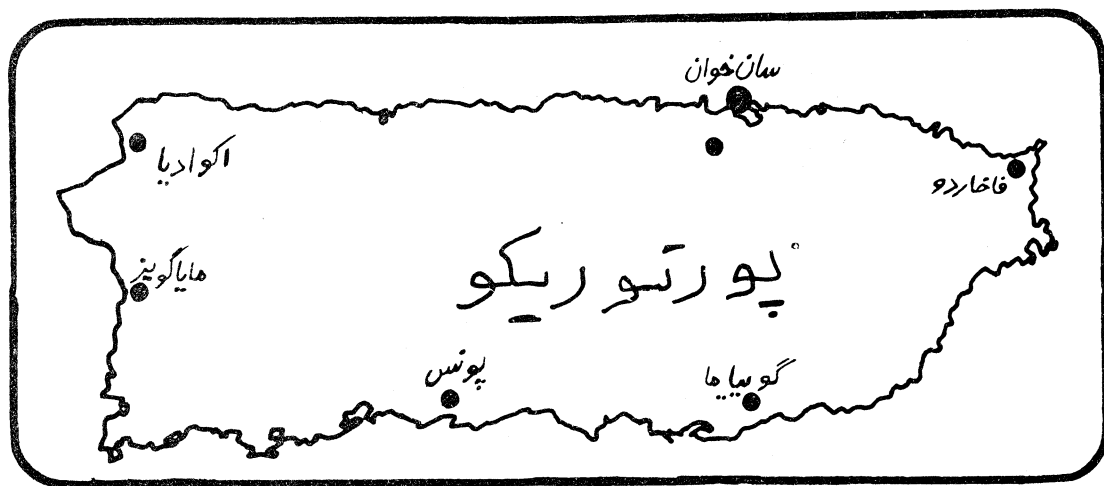 سان خوان
اکوادیا
فاخاردو
مایاگویز
پورتوریکو
پونس
گوییاما